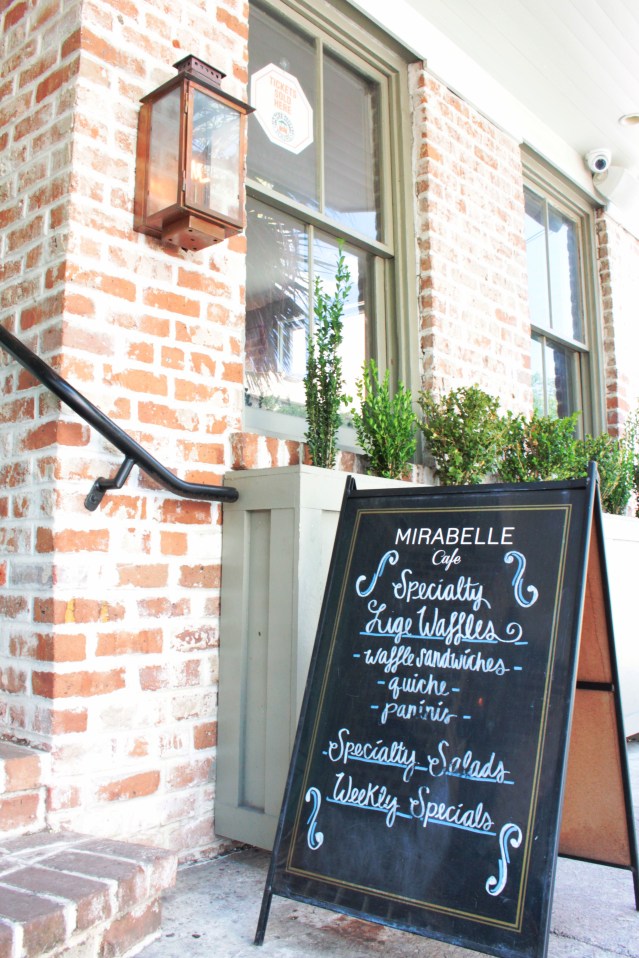 TICKETS
SOLD
HERE
MIRABELLE
Cafe
Specialty
Lige Waffles
- waffle sandwiches -
- quiche -
- paninis -
- Specialty Salads -
- Weekly Specials -